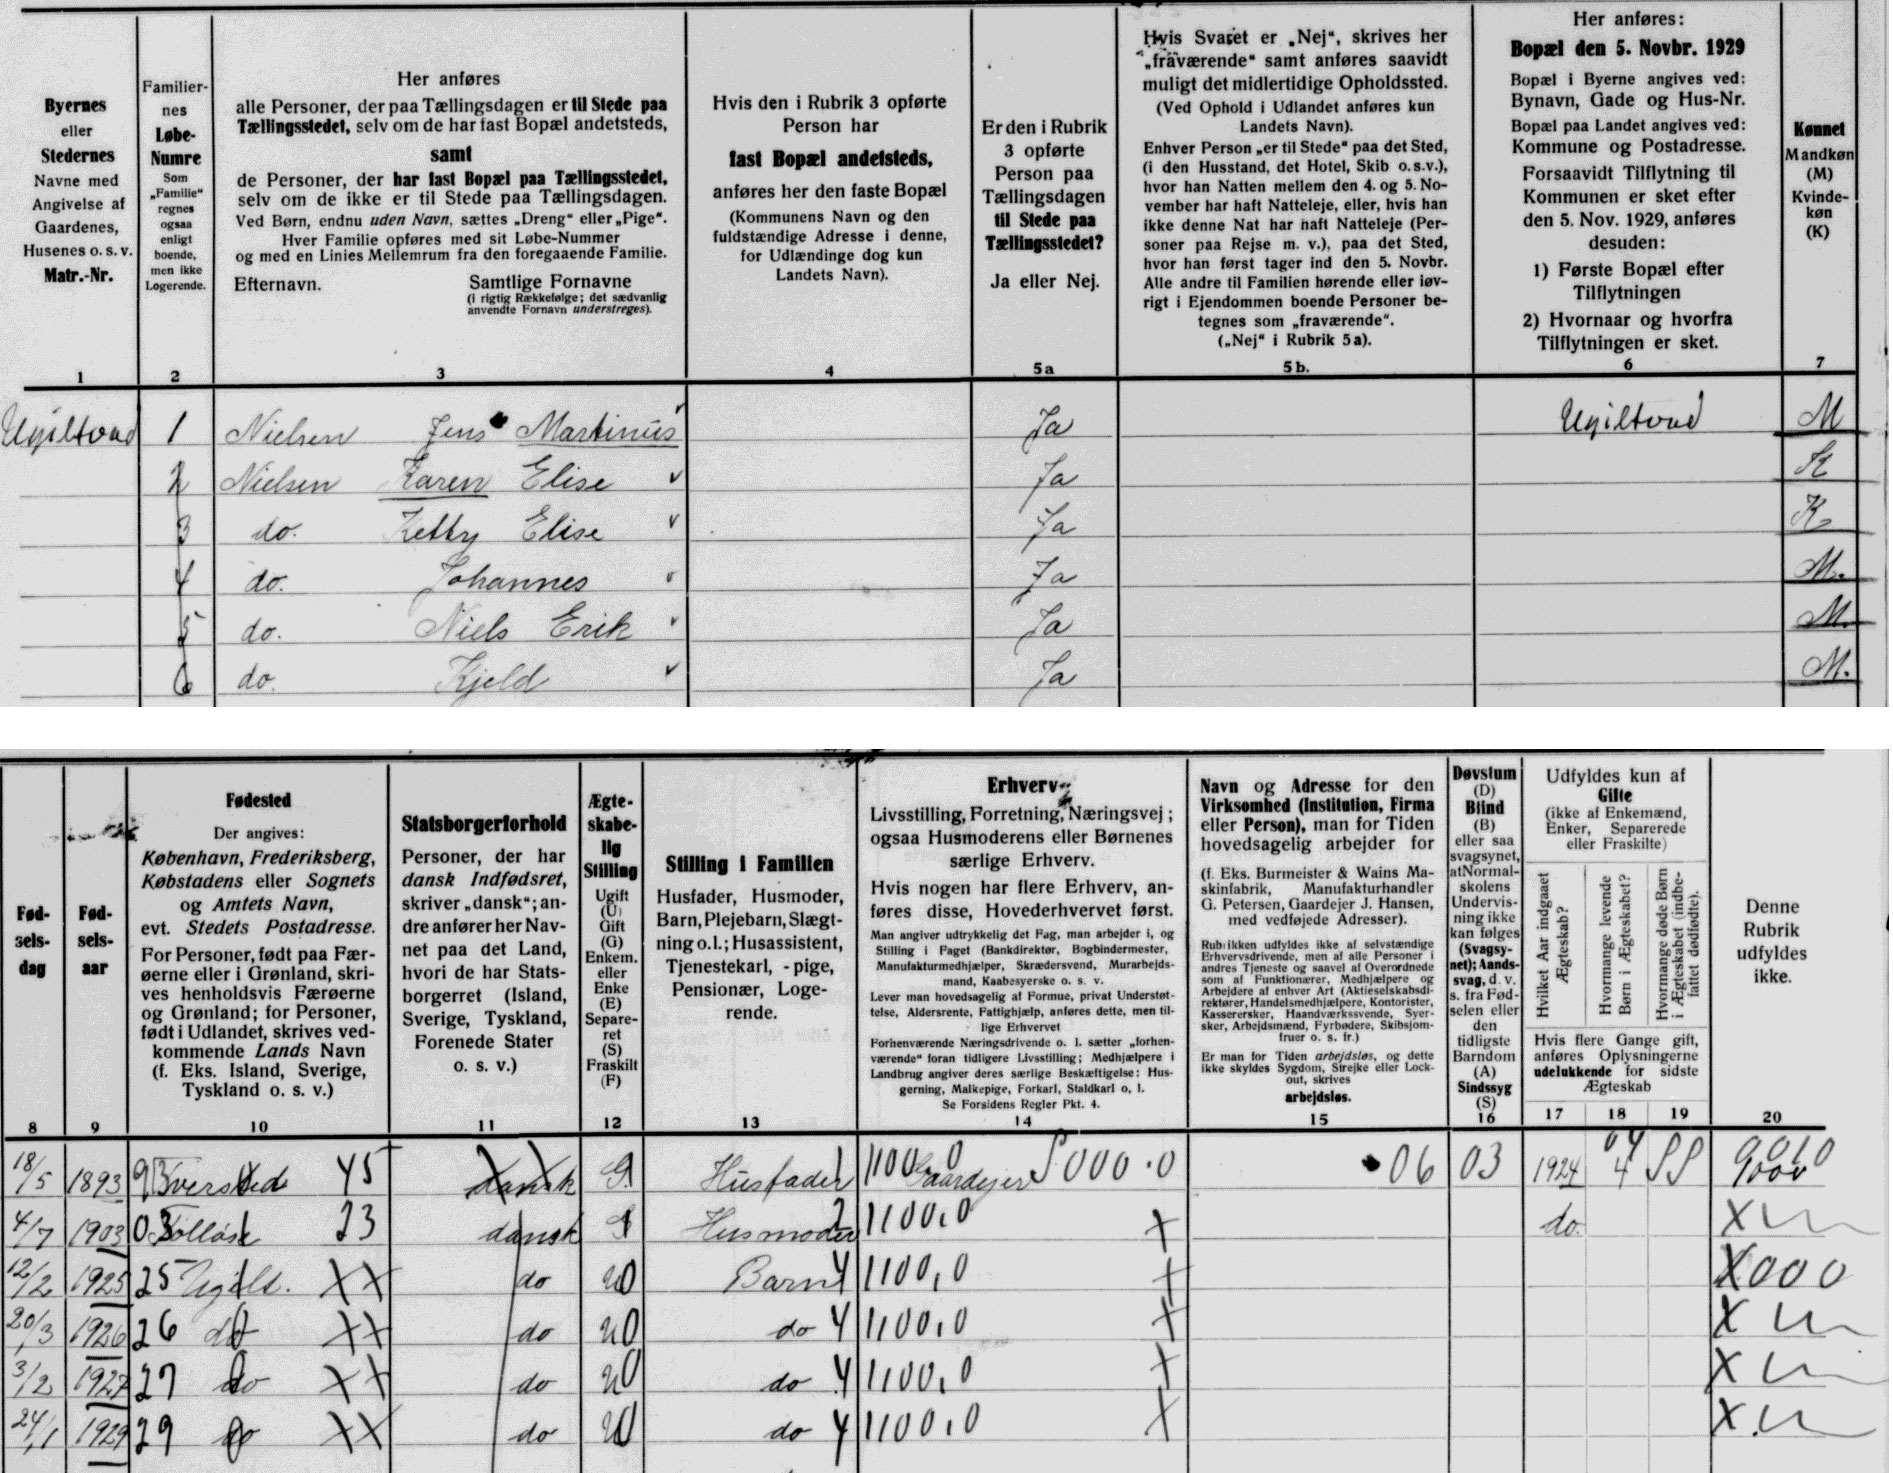 Byernes
eller
Stedernes
Navne med
Angivelse af
Gaardenes,
Husenes o. s. v.
Matr.-Nr.
1
Familier-
nes
Løbe-
Numre
Som
„Familie"
regnes
ogsaa
enligt
boende,
men ikke
Logerende.
2
Her anføres
alle Personer, der paa Tællingsdagen er til Stede paa
Tællingsstedet, selv om de har fast Bopæl andetsteds,
samt
de Personer, der har fast Bopæl paa Tællingsstedet,
selv om de ikke er til Stede paa Tællingsdagen.
Ved Børn, endnu uden Navn, sættes „Dreng" eller „Pige".
Hver Familie opføres med sit Løbe-Nummer
og med en Linies Mellemrum fra den foregaaende Familie.
Efternavn. Samtlige Fornavne
(i rigtig Rækkefølge; det sædvanlig
anvendte Fornavn understreges).
3
Hvis den i Rubrik 3 opførte
Person har
fast Bopæl andetsteds,
anføres her den faste Bopæl
(Kommunens Navn og den
fuldstændige Adresse i denne,
for Udlændinge dog kun
Landets Navn).
4
Er den i Rubrik
3 opførte
Person paa
Tællingsdagen
til Stede paa
Tællingsstedet?
Ja eller Nej.
5a
Hvis Svaret er „Nej", skrives her
„fraværende" samt anføres saavidt
muligt det midlertidige Opholdssted.
(Ved Ophold i Udlandet anføres kun
Landets Navn).
Enhver Person „er til Stede" paa det Sted,
(i den Husstand, det Hotel, Skib o.s.v.),
hvor han Natten mellem den 4. og 5. No-
vember har haft Natteleje, eller, hvis han
ikke denne Nat har haft Natteleje (Per-
soner paa Rejse m. v.), paa det Sted,
hvor han først tager ind den 5. Novbr.
Alle andre til Familien hørende eller iøv-
rigt i Ejendommen boende Personer be-
tegnes som „fraværende".
(„Nej" i Rubrik 5a).
5 b.
Her anføres:
Bopæl den 5. Novbr. 1929
Bopæl i Byerne angives ved:
Bynavn, Gade og Hus-Nr.
Bopæl paa Landet angives ved:
Kommune og Postadresse.
Forsaavidt Tilflytning til
Kommunen er sket efter
den 5. Nov. 1929, anføres
desuden:
1) Første Bopæl efter
Tilflytningen
2) Hvornaar og hvorfra
Tilflytningen er sket.
6
Kønnet
Mandkøn
(M)
Kvinde-
køn
(K)
7
Ugiltvad 1 Nielsen Jens Martinus Ja Ugiltvad M
2 Nielsen Karen Elise Ja K
3 do. Ketty Elise Ja K
4 do. Johannes Ja M.
5 do. Niels Erik Ja M.
6 do. Kjeld Ja M.
Fød-
sels-
dag
8
Fød-
sels-
aar
9
Fødested
Der angives:
København, Frederiksberg,
Købstadens eller Sognets
og Amtets Navn,
evt. Stedets Postadresse.
For Personer, født paa Fær-
øerne eller i Grønland, skri-
ves henholdsvis Færøerne
og Grønland; for Personer,
født i Udlandet, skrives ved-
kommende Lands Navn
(f. Eks. Island, Sverige,
Tyskland o. s. v.)
10
Statsborgerforhold
Personer, der har
dansk Indfødsret,
skriver „dansk"; an-
dre anfører her Nav-
net paa det Land,
hvori de har Stats-
borgerret (Island,
Sverige, Tyskland,
Forenede Stater
o. s. v.)
11
Ægte-
skabe-
lig
Stilling
Ugift
(U)
Gift
(G)
Enkem.
eller
Enke
(E)
Separe-
ret
(S)
Fraskilt
(F)
12
Stilling i Familien
Husfader, Husmoder,
Barn, Plejebarn, Slægt-
ning o.l.; Husassistent,
Tjenestekarl, -pige,
Pensionær, Loge-
rende.
13
Erhverv
Livsstilling, Forretning, Næringsvej;
ogsaa Husmoderens eller Børnenes
særlige Erhverv.
Hvis nogen har flere Erhverv, an-
føres disse, Hovederhvervet først.
Man angiver udtrykkelig det Fag, man arbejder i, og
Stilling i Faget (Bankdirektør, Bogbindermester,
Manufakturmedhjælper, Skrædersvend, Murarbejds-
mand, Kaabesyerske o. s. v.
Lever man hovedsagelig af Formue, privat Understøt-
telse, Aldersrente, Fattighjælp, anføres dette, men til-
lige Erhvervet
Forhenværende Næringsdrivende o. l. sætter „forhen-
værende" foran tidligere Livsstilling; Medhjælpere i
Landbrug angiver deres særlige Beskæftigelse: Hus-
gerning, Malkepige, Forkarl, Staldkarl o. l.
Se Forsidens Regler Pkt. 4.
14
Navn og Adresse for den
Virksomhed (Institution, Firma
eller Person), man for Tiden
hovedsagelig arbejder for
(f. Eks. Burmeister & Wains Ma-
skinfabrik, Manufakturhandler
G. Petersen, Gaardejer J. Hansen,
med vedføjede Adresser).
Rubrikken udfyldes ikke af selvstændige
Erhvervsdrivende, men af alle Personer i
andres Tjeneste og saavel af Overordnede
som af Funktionærer, Medhjælpere og
Arbejdere af enhver Art (Aktieselskabsdi-
rektører, Handelsmedhjælpere, Kontorister,
Kasserersker, Haandværkssvende, Syer-
sker, Arbejdsmænd, Fyrbødere, Skibsjom-
fruer o. s. fr.)
Er man for Tiden arbejdsløs, og dette
ikke skyldes Sygdom, Strejke eller Lock-
out, skrives
arbejdsløs.
15
Døvstum
(D)
Blind
(B)
eller saa
svagsynet,
at Normal-
skolens
Undervis-
ning ikke
kan følges
(Svagsy-
net); Aands-
svag, d. v.
s. fra Fød-
selen eller
den
tidligste
Barndom
(A)
Sindssyg
(S)
16
Udfyldes kun af
Gifte
(ikke af Enkemænd,
Enker, Separerede
eller Fraskilte)
Hvilket Aar indgaaet
Ægteskab?
Hvormange levende
Børn i Ægteskabet?
Hvormange døde Børn
i Ægteskabet (indbe-
fattet dødfødte).
Hvis flere Gange gift,
anføres Oplysningerne
udelukkende for sidste
Ægteskab
17 18 19
Denne
Rubrik
udfyldes
ikke.
20
18/5 1893 9 45 dansk G. Husfader 1 1100,0 Gaardejer 06 03 1924 4
4/7 1903 03 Tølløse 23 dansk G Husmoder 2 1100,0 X do. X
12/2 1925 25 Ugilt. XX do U 0 Barn 4 1100,0 X X000
20/3 1926 26 do XX do U 0 do 4 1100,0 X X
3/2 1927 27 do XX do U 0 do 4 1100,0 X X
24/1 1929 29 do XX do U 0 do 4 1100,0 X X